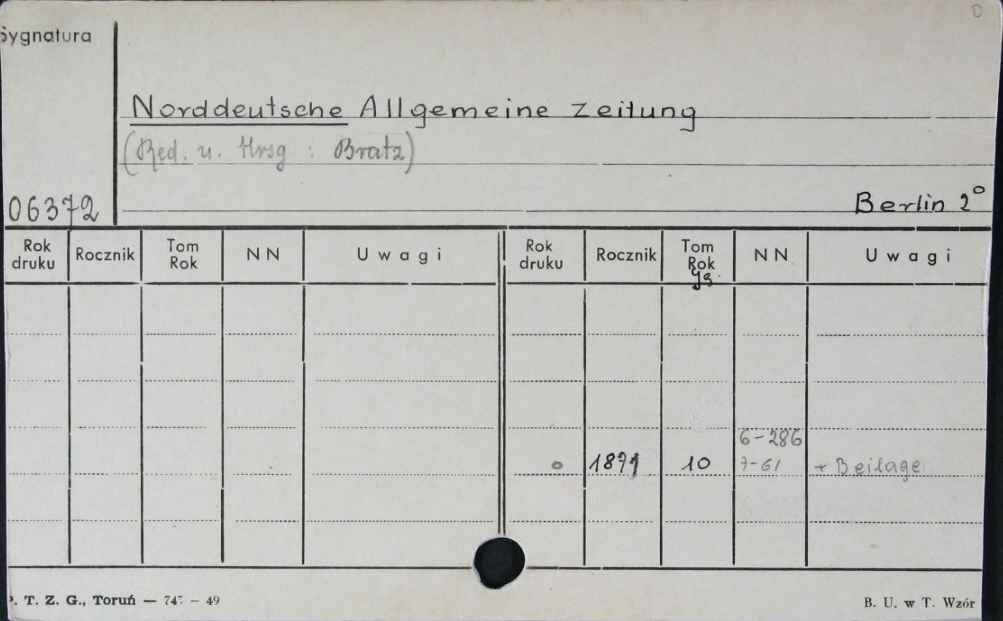 D
Sygnatura
Norddeutsche Allgemeine Zeitung
(Red. u. Hrsg : Bratz)
06372
Berlin 2°
Rok druku Rocznik Tom Rok NN Uwagi Rok druku Rocznik Tom Rok Jg. NN Uwagi
6-286
1871 10 7-61 + Beilage
. T. Z. G., Toruń — 49
B. U. w T. Wzór